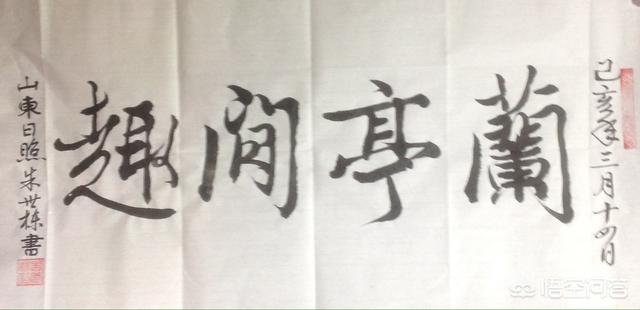 己亥年三月十四日
蘭亭閒趣
山東日照朱世栋書
悟空问答